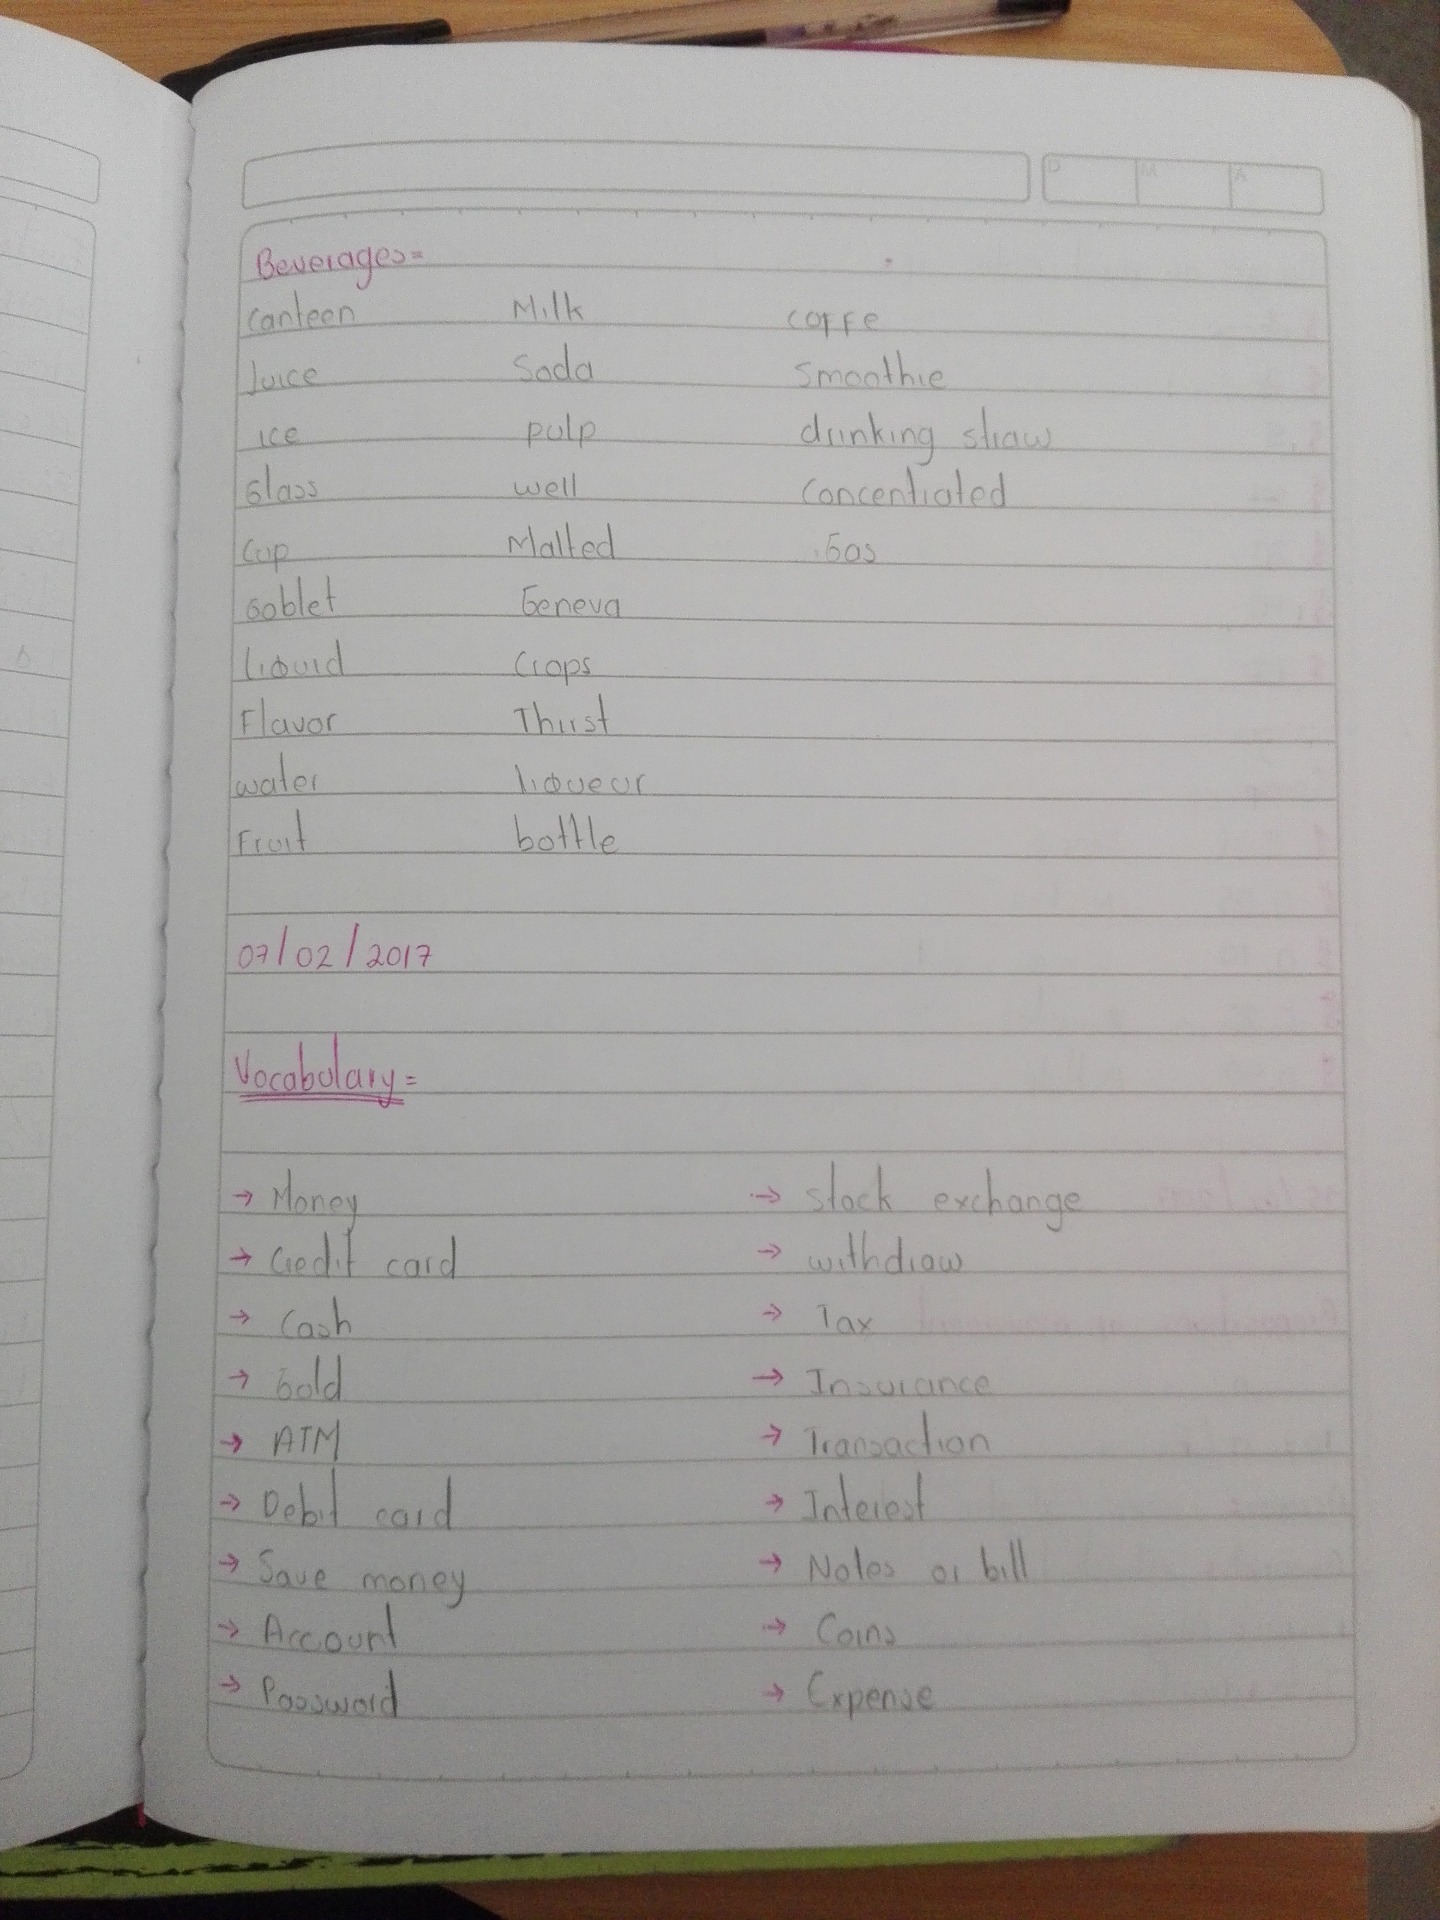 D M A
Beverages=
Canteen Milk coffe
Juice Soda Smoothie
ice pulp drinking straw
Glass well Concentrated
Cup Malted Gas
Goblet Geneva
liquid Crops
Flavor Thirst
water liqueur
Fruit bottle
07/02/2017
Vocabulary=
→ Money → stock exchange
→ Credit card → withdraw
→ Cash → Tax
→ Gold → Insurance
→ ATM → Transaction
→ Debit card → Interest
→ Save money → Notes or bill
→ Account → Coins
→ Password → Expense